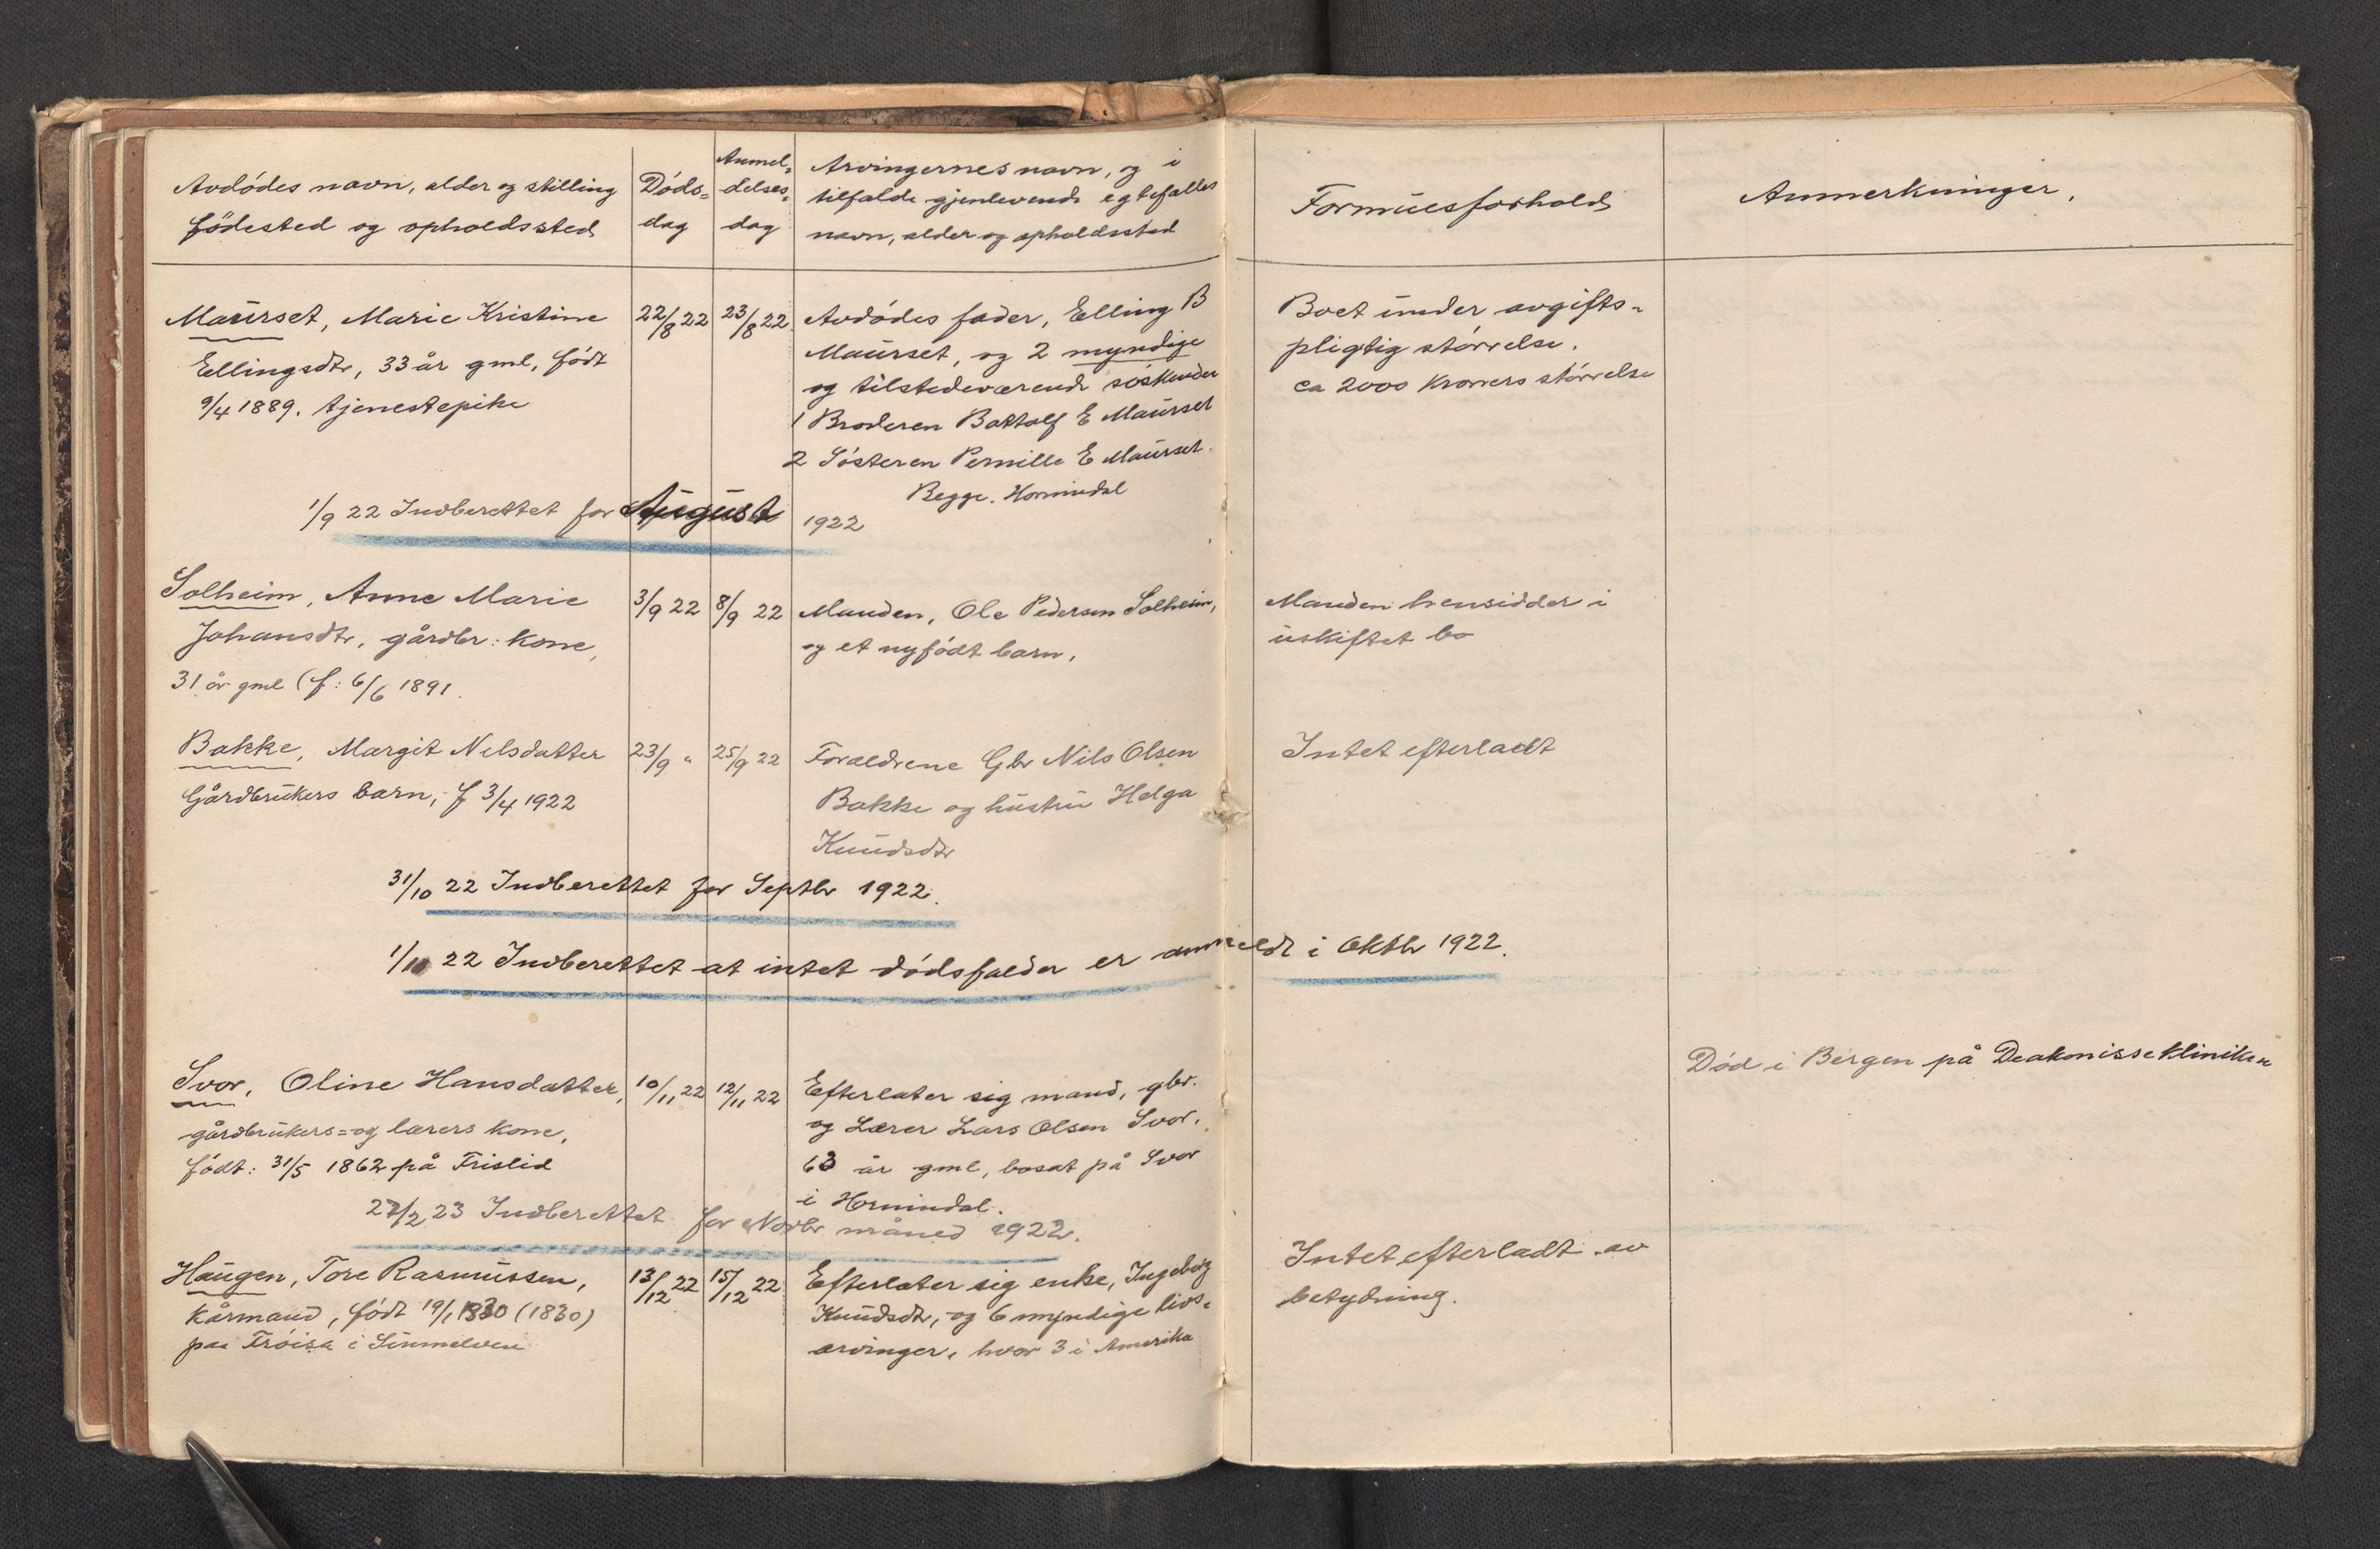 Avdödes navn, alder og stilling
födested og opholdssted
Döds=
dag
Anmel=
delses=
dag
Arvingernes navn, og i
tilfælde gjenlevende egtefælles
navn, alder og opholdssted
Formuesforhold
Anmerkninger.
Maurset, Marie Kristine
Ellingsdtr, 33 år gml, födt
9/4 1889. tjenestepike
22/8 22
23/8 22
Avdödes fader, Elling B
Maurset, og 2 myndige
og tilstedeværende söskender
1 Broderen Bottolf E Maurset
2 Sösteren Pernille E Maurset.
Begge. Hornindal
Boet under avgifts=
pligtig störrelse.
ca 2000 Kroners störrelse
1/9 22 Indberettet for August 1922
Solheim, Anne Marie
Johansdtr, gårdbr: kone,
31 år gml (f: 6/6 1891.
3/9 22
8/9 22
Manden, Ole Pedersen Solheim,
og et nyfödt barn.
Manden hensidder i
uskiftet bo
Bakke, Margit Nilsdatter
Gårdbrukers barn, f 3/4 1922
23/9 "
25/9 22
Forældrene Gbr Nils Olsen
Bakke og hustru Helga
Knudsdtr
Intet efterladt
31/10 22 Indberettet for Septbr 1922.
1/11 22 Indberettet at intet dödsfalder er anmeldt i Oktbr 1922.
Svor, Oline Hansdatter,
gårdbrukers= og lærers kone,
födt: 31/5 1862 på Frislid
10/11 22
12/11 22
Efterlater sig mand, gbr.
og Lærer Lars Olsen Svor.
63 år gml, bosat på Svor
i Hornindal.
Död i Bergen på Deakonisseklinikken
27/2 23 Indberettet for Novbr måned 1922.
Haugen, Tore Rasmussen,
kårmand, födt 19/1 1830 (1830)
paa Tröisa i Sunnelven
13/12 22
15/12 22
Efterlater sig enke, Ingeborg
Knudsdtr, og 6 myndige livs=
arvinger, hvor 3 i Amerika
Intet efterladt av
betydning.